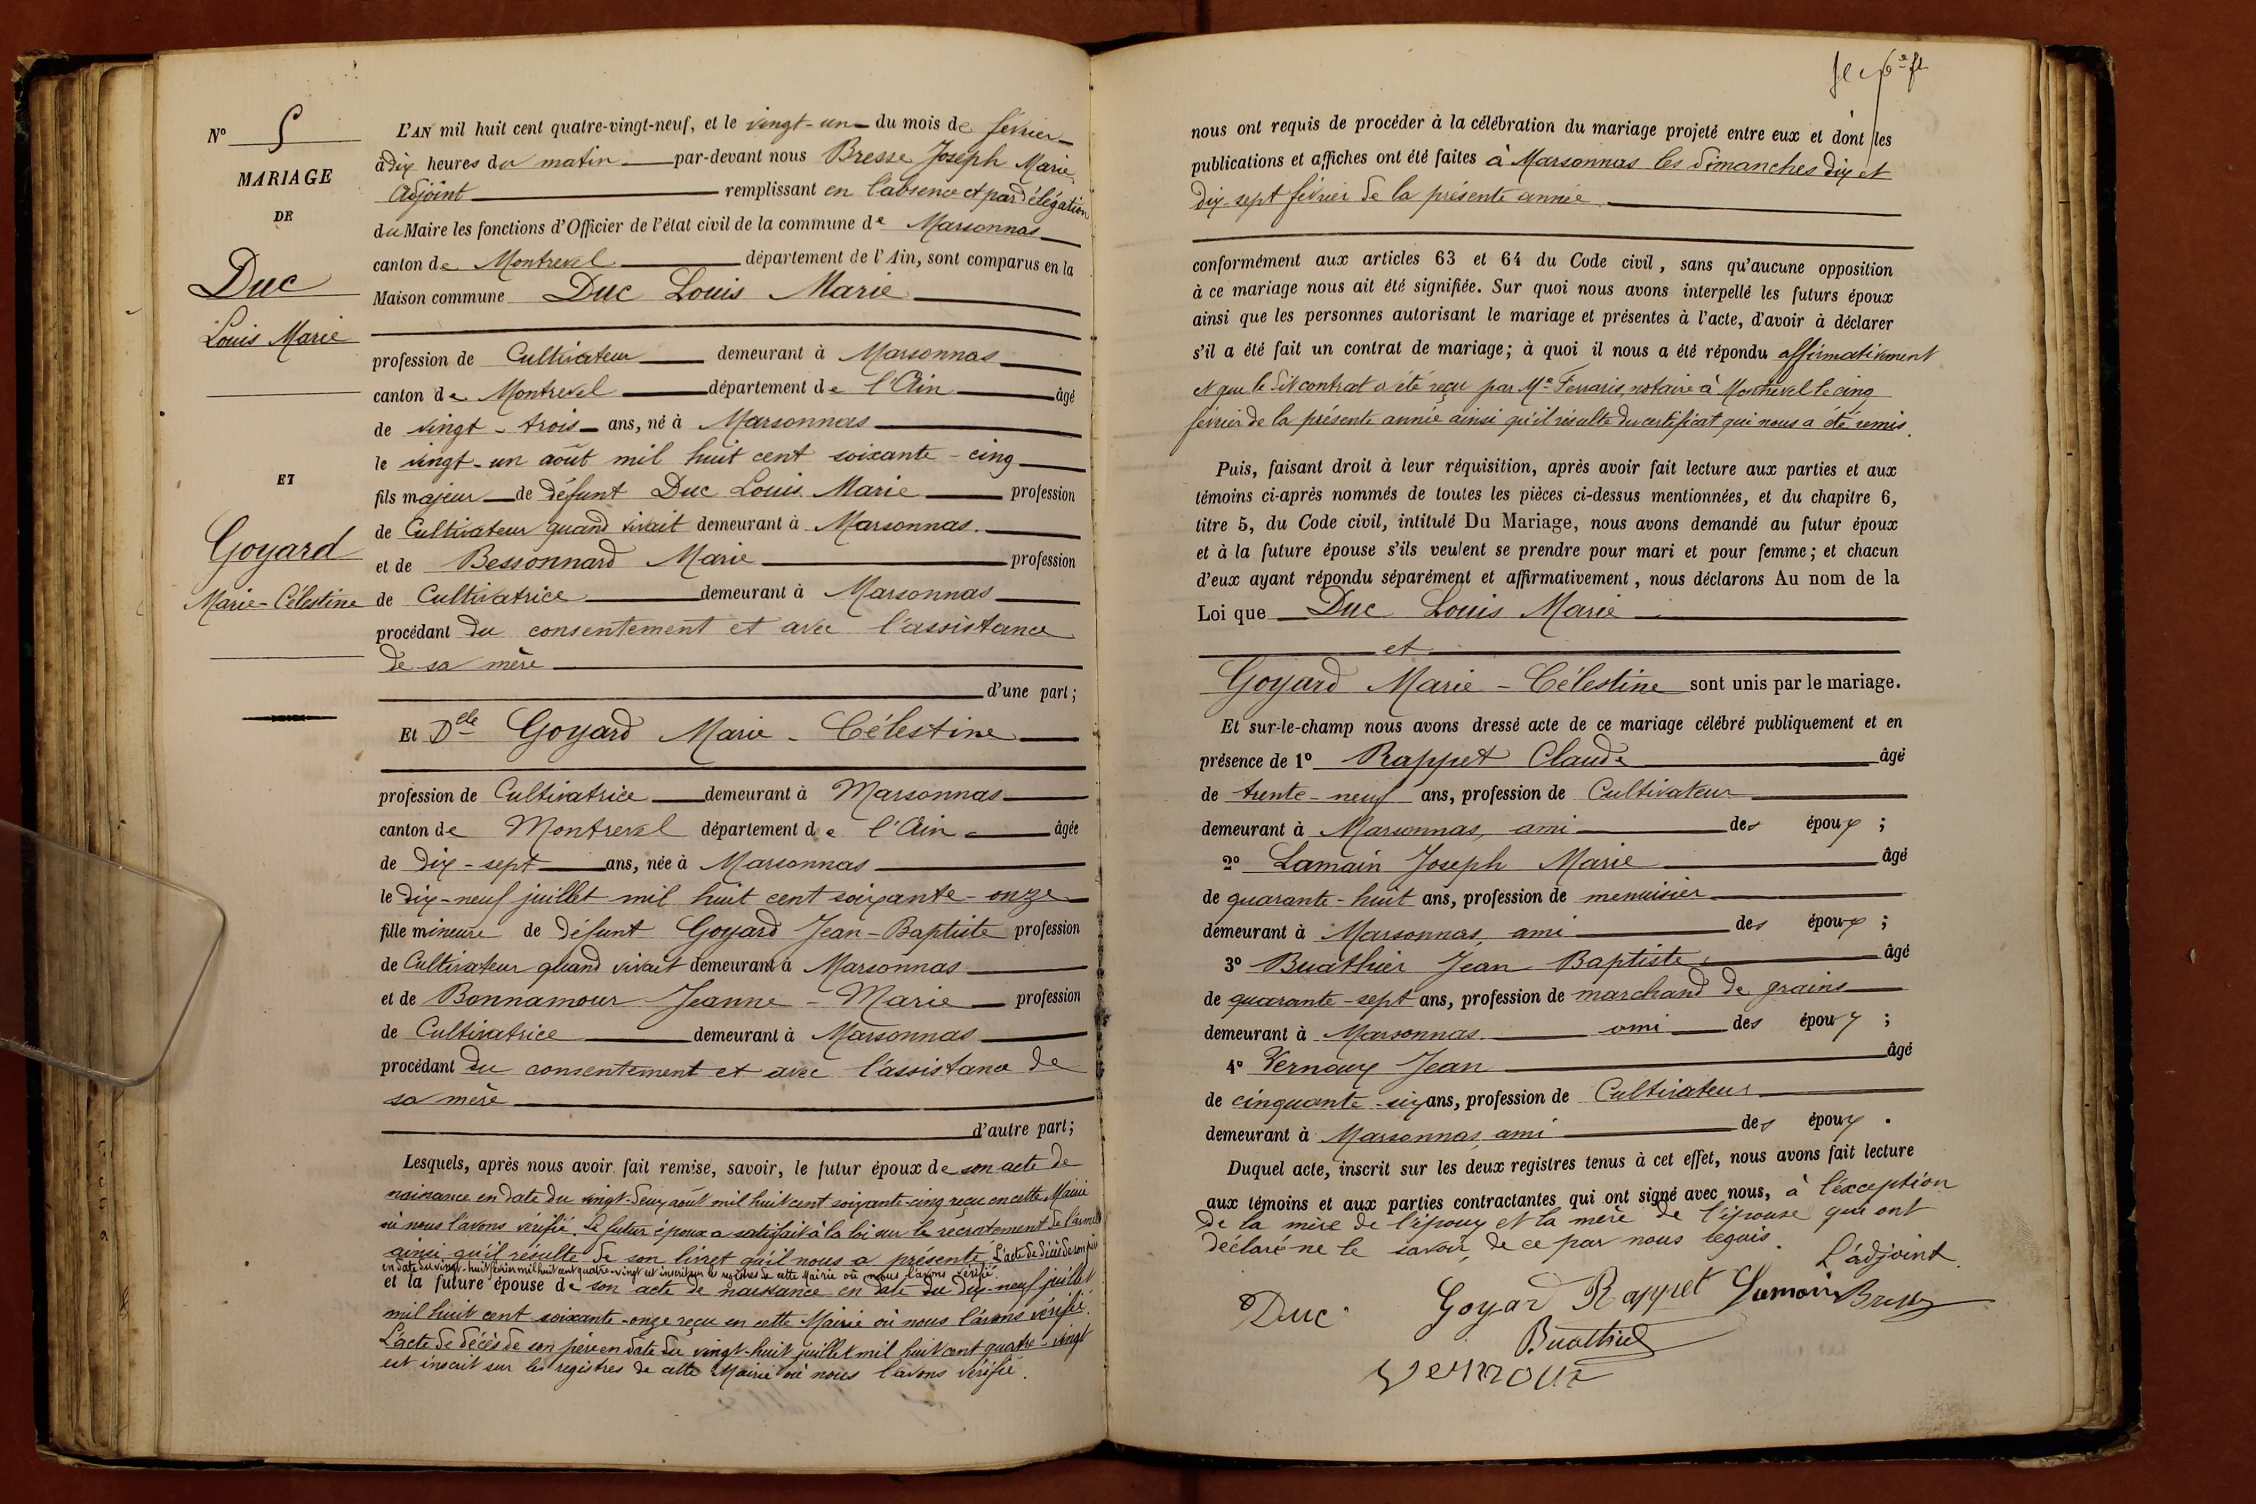 N° 5
MARIAGE
DE
Duc
Louis Marie
ET
Goyard
Marie-Célestine
L'AN mil huit cent quatre-vingt-neuf, et le vingt-un du mois de février
à dix heures du matin par-devant nous Bresse Joseph Marie,
Adjoint remplissant en l'absence et par délégation
du Maire les fonctions d'Officier de l'état civil de la commune de Marsonnas
canton de Montrevel département de l'Ain, sont comparus en la
Maison commune Duc Louis Marie
profession de Cultivateur demeurant à Marsonnas
canton de Montrevel département de l'Ain âgé
de vingt-trois ans, né à Marsonnas
le vingt-un août mil huit cent soixante-cinq
fils majeur de défunt Duc Louis Marie profession
de Cultivateur quand vivait demeurant à Marsonnas.
et de Bessonnard Marie profession
de Cultivatrice demeurant à Marsonnas
procédant du consentement et avec l'assistance
de sa mère
d'une part;
Et Delle Goyard Marie-Célestine
profession de Cultivatrice demeurant à Marsonnas
canton de Montrevel département de l'Ain âgée
de dix-sept ans, née à Marsonnas
le dix-neuf juillet mil huit cent soixante-onze
fille mineure de défunt Goyard Jean-Baptiste profession
de Cultivateur quand vivait demeurant à Marsonnas
et de Bonnamour Jeanne-Marie profession
de Cultivatrice demeurant à Marsonnas
procédant du consentement et avec l'assistance de
sa mère
d'autre part;
Lesquels, après nous avoir fait remise, savoir, le futur époux de son acte de
naissance en date du vingt-deux août mil huit cent soixante-cinq reçu en cette Mairie
où nous l'avons vérifié. Le futur époux a satisfait à la loi sur le recrutement de l'armée
ainsi qu'il résulte de son livret qu'il nous a présenté. L'acte de décès de son père
en date du vingt-huit février mil huit cent quatre-vingt est inscrit sur les registres de cette Mairie où nous l'avons vérifié.
et la future épouse de son acte de naissance en date du dix-neuf juillet
mil huit cent soixante-onze reçu en cette Mairie où nous l'avons vérifié.
L'acte de décès de son père en date du vingt-huit juillet mil huit cent quatre-vingt
est inscrit sur les registres de cette Mairie où nous l'avons vérifié.
nous ont requis de procéder à la célébration du mariage projeté entre eux et dont les
publications et affiches ont été faites à Marsonnas les dimanches dix et
dix-sept février de la présente année.
conformément aux articles 63 et 64 du Code civil, sans qu'aucune opposition
à ce mariage nous ait été signifiée. Sur quoi nous avons interpellé les futurs époux
ainsi que les personnes autorisant le mariage et présentes à l'acte, d'avoir à déclarer
s'il a été fait un contrat de mariage; à quoi il nous a été répondu affirmativement
et que le dit contrat a été reçu par Me Ferraris, notaire à Montrevel le cinq
février de la présente année ainsi qu'il résulte du certificat qui nous a été remis.
Puis, faisant droit à leur réquisition, après avoir fait lecture aux parties et aux
témoins ci-après nommés de toutes les pièces ci-dessus mentionnées, et du chapitre 6,
titre 5, du Code civil, intitulé Du Mariage, nous avons demandé au futur époux
et à la future épouse s'ils veulent se prendre pour mari et pour femme; et chacun
d'eux ayant répondu séparément et affirmativement, nous déclarons Au nom de la
Loi que Duc Louis Marie
et
Goyard Marie-Célestine sont unis par le mariage.
Et sur-le-champ nous avons dressé acte de ce mariage célébré publiquement et en
présence de 1° Rappet Claude âgé
de trente-neuf ans, profession de Cultivateur
demeurant à Marsonnas, ami des époux;
2° Lamain Joseph Marie âgé
de quarante-huit ans, profession de menuisier
demeurant à Marsonnas, ami des époux;
3° Buathier Jean Baptiste, âgé
de quarante-sept ans, profession de marchand de grains
demeurant à Marsonnas ami des époux;
4° Vernoux Jean âgé
de cinquante-six ans, profession de Cultivateur
demeurant à Marsonnas, ami des époux.
Duquel acte, inscrit sur les deux registres tenus à cet effet, nous avons fait lecture
aux témoins et aux parties contractantes qui ont signé avec nous, à l'éxception
de la mère de l'époux et la mère de l'épouse qui ont
déclaré ne le savoir, de ce par nous requis.
L'adjoint.
Duc Goyard Rappet Lamain Bresse
Buathier
Vernoux